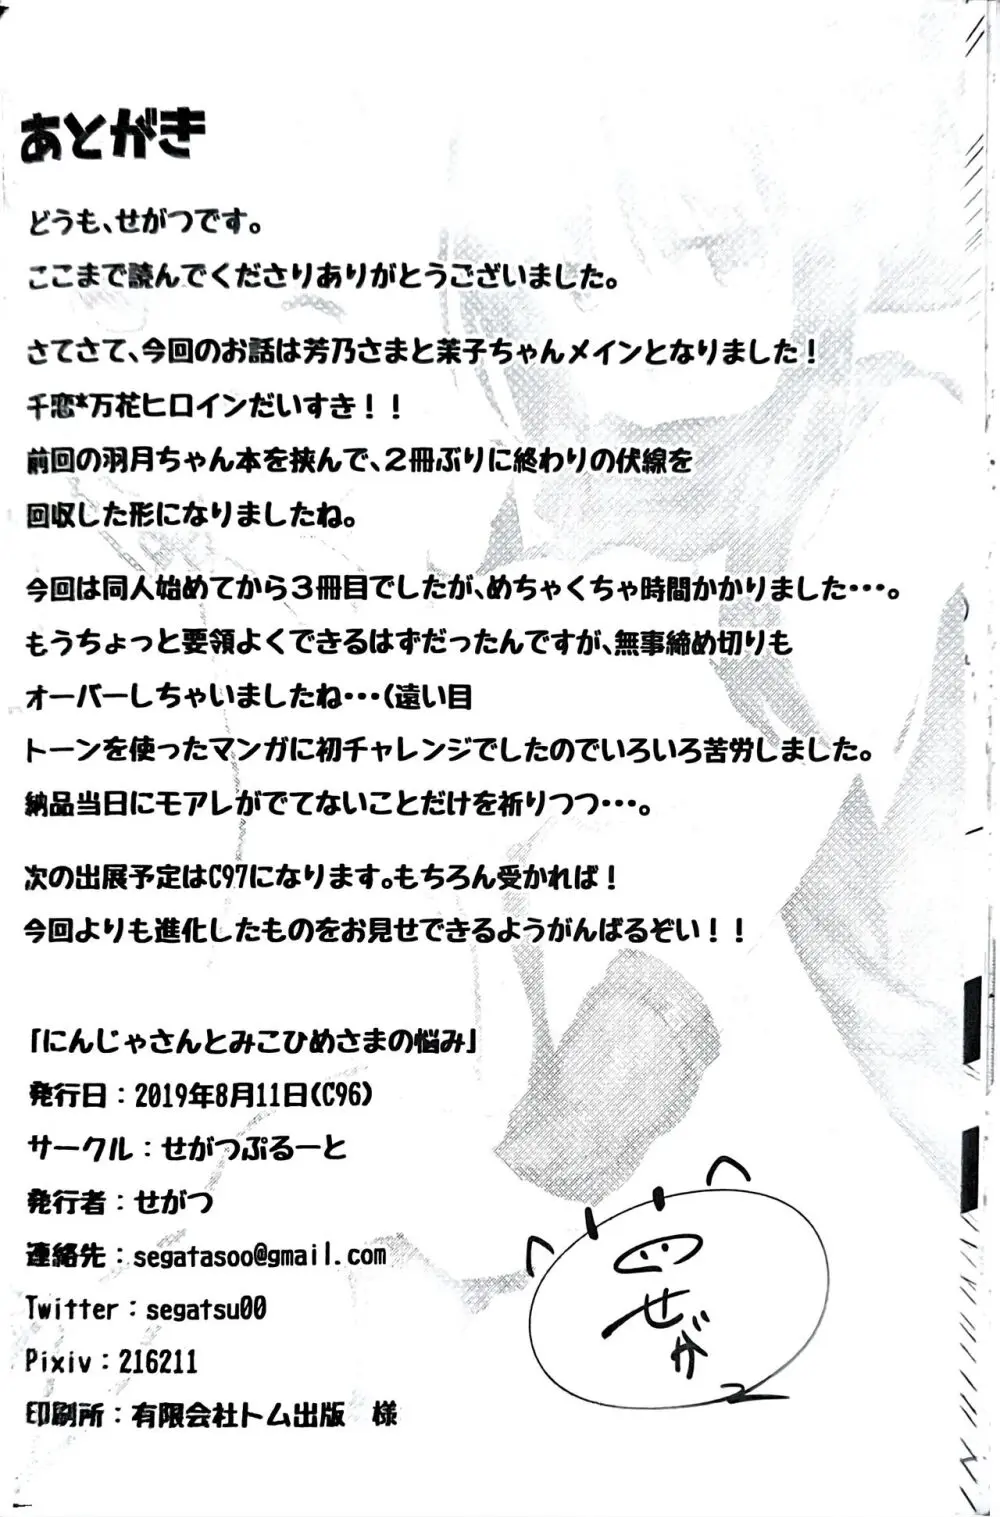 あとがき
どうも、せがつです。
ここまで読んでくださりありがとうございました。
さてさて、今回のお話は芳乃さまと茉子ちゃんメインとなりました！
千恋*万花ヒロインだいすき！！
前回の羽月ちゃん本を挟んで、２冊ぶりに終わりの伏線を
回収した形になりましたね。
今回は同人始めてから３冊目でしたが、めちゃくちゃ時間かかりました・・・。
もうちょっと要領よくできるはずだったんですが、無事締め切りも
オーバーしちゃいましたね・・・（遠い目
トーンを使ったマンガに初チャレンジでしたのでいろいろ苦労しました。
納品当日にモアレがでてないことだけを祈りつつ・・・。
次の出展予定はC97になります。もちろん受かれば！
今回よりも進化したものをお見せできるようがんばるぞい！！
「にんじゃさんとみこひめさまの悩み」
発行日：2019年8月11日(C96)
サークル：せがつぷるーと
発行者：せがつ
連絡先：segatasoo@gmail.com
Twitter：segatsu00
Pixiv：216211
印刷所：有限会社トム出版　様
せがつ